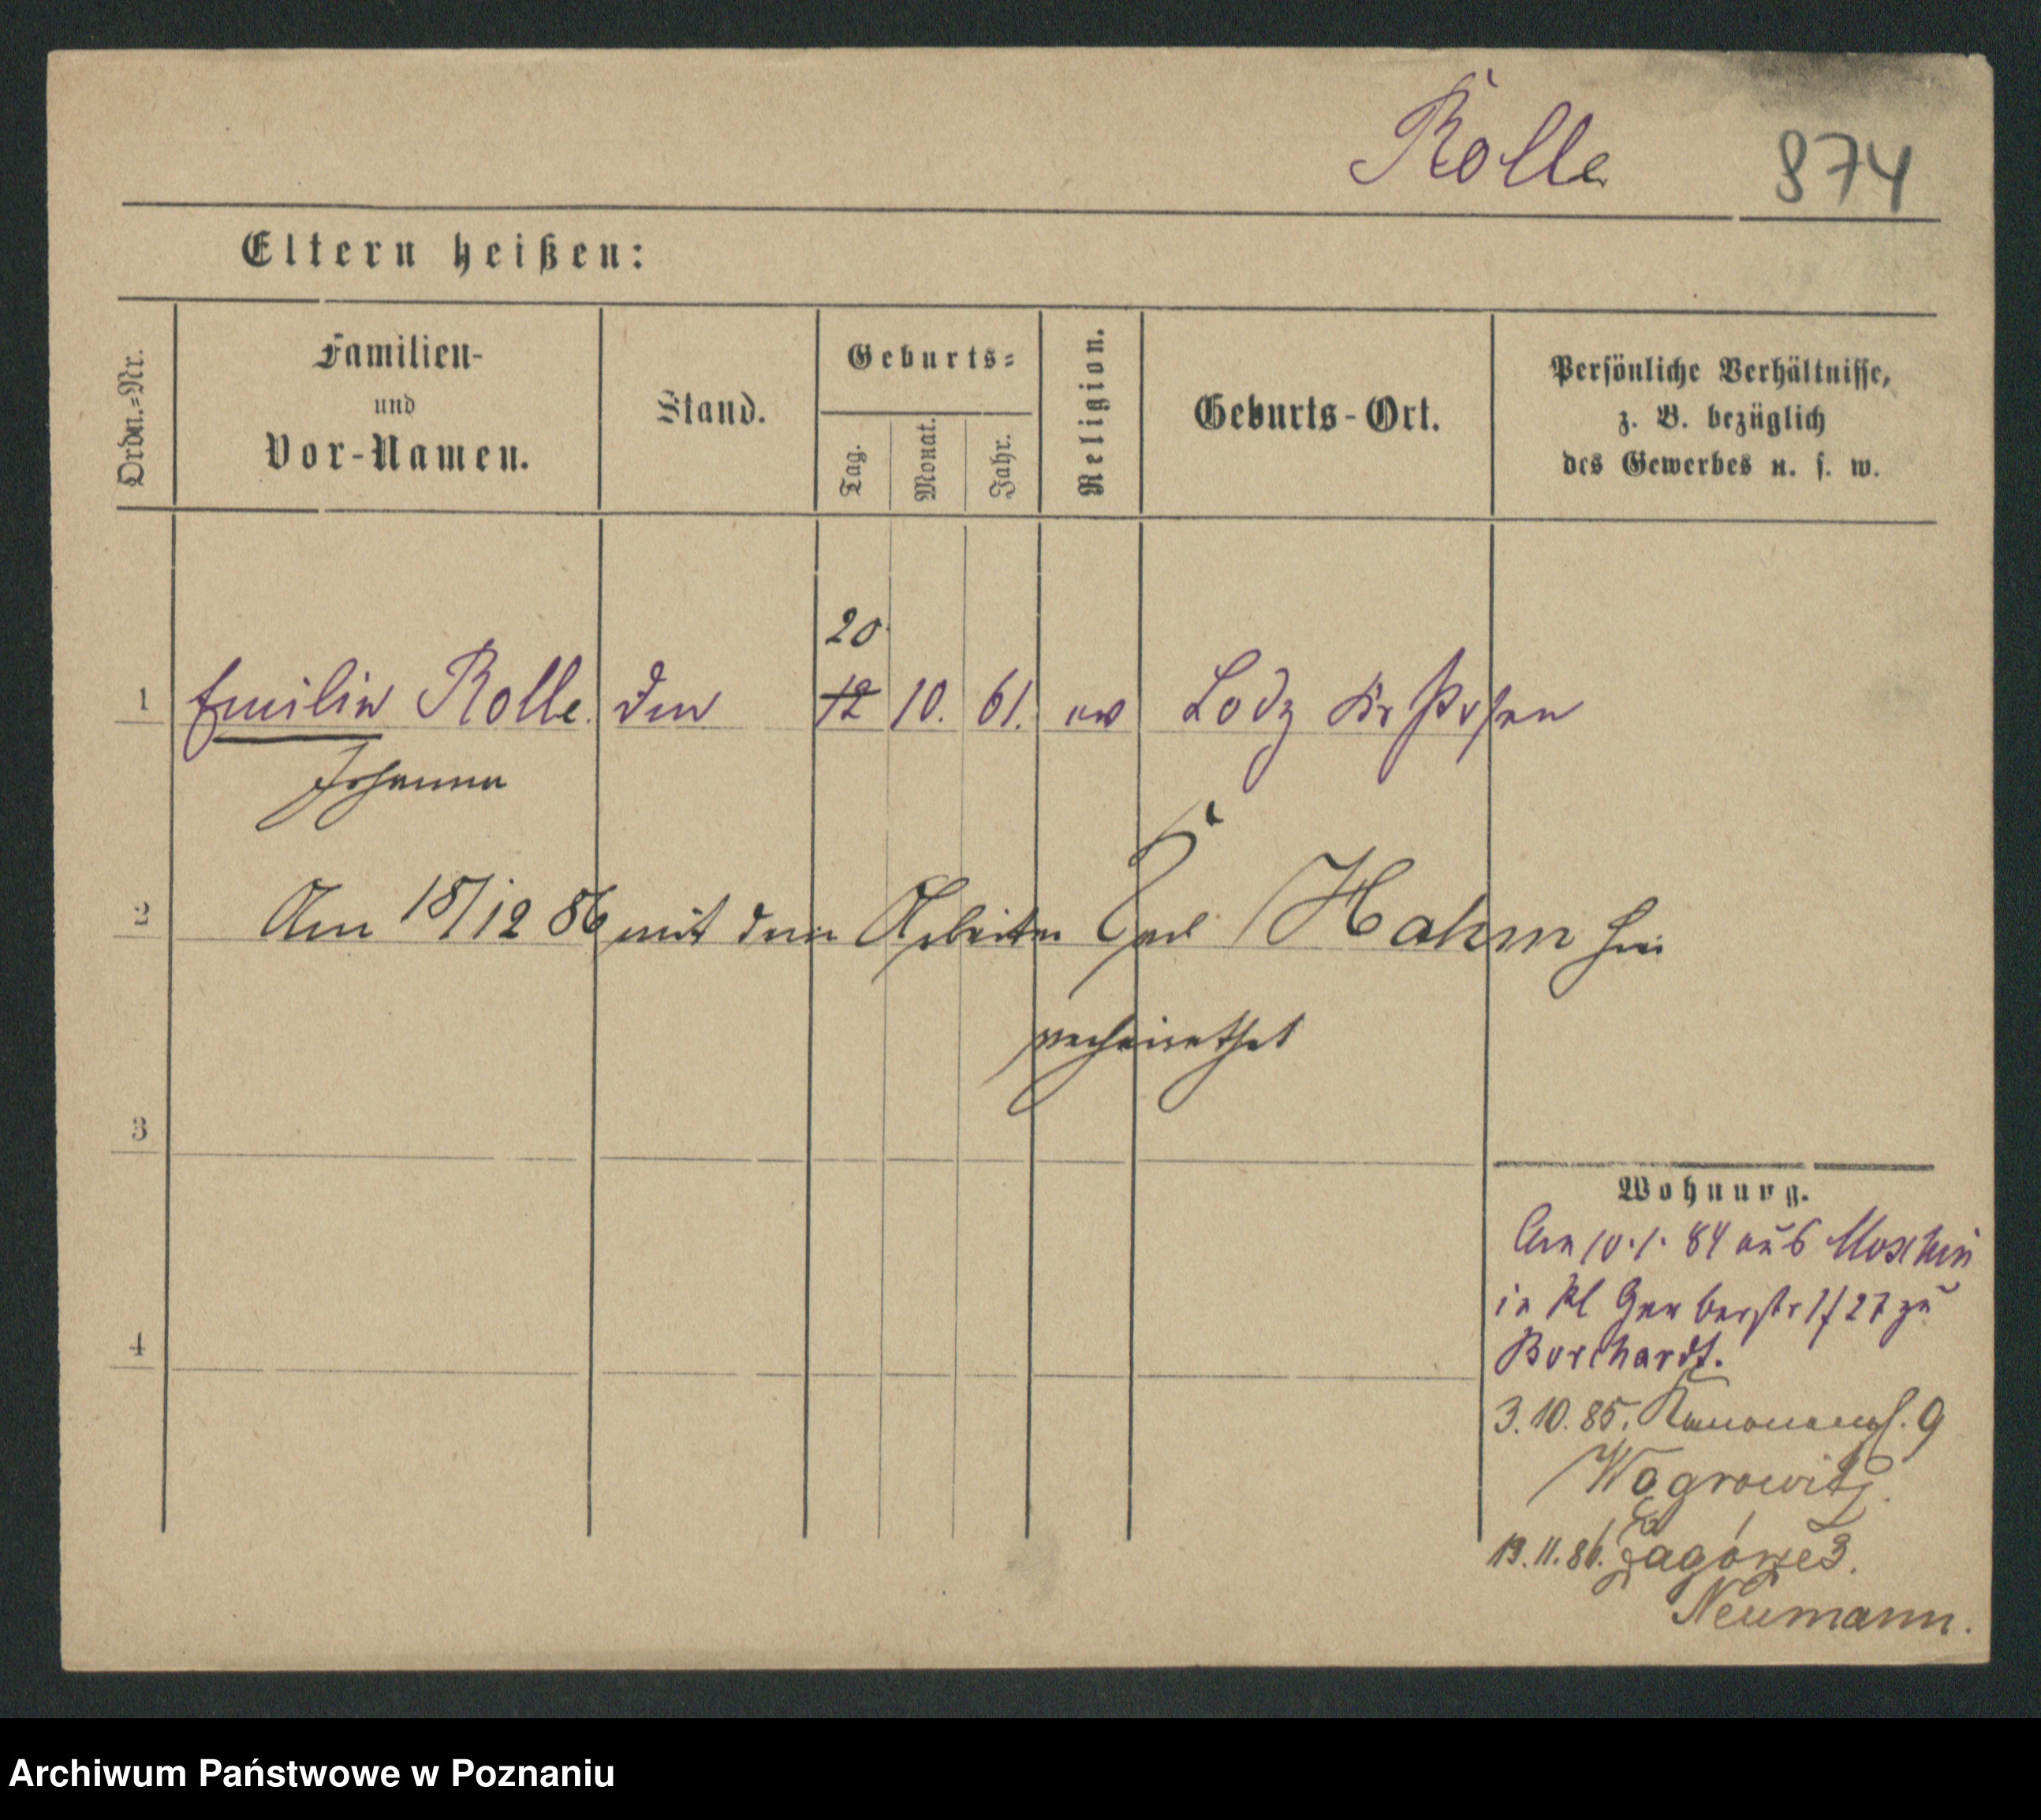 Rolle 874
Eltern heißen:
Ordn.=Nr.
Familien-
und
Vor-Namen.
Stand.
Geburts=
Tag.
Monat.
Jahr.
Religion.
Geburts-Ort.
Persönliche Verhältnisse,
z. B. bezüglich
des Gewerbes u. s. w.
20
1 Emilie Rolle. 12 10. 61. ev Lodz Kr Posen
Johanna
2 Am 18/12 86 mit dem Arbeiter Carl Hahm hier
verheirathet
3
Wohnung.
Am 10.1.84 aus Moschin
in Kl Gerberstr 7/27 zu
4
Borchardt.
3.10.85. Kanonenpl. 9
Wagrowitz.
13.11.86. Zagórze 3.
Neumann.
Archiwum Państwowe w Poznaniu